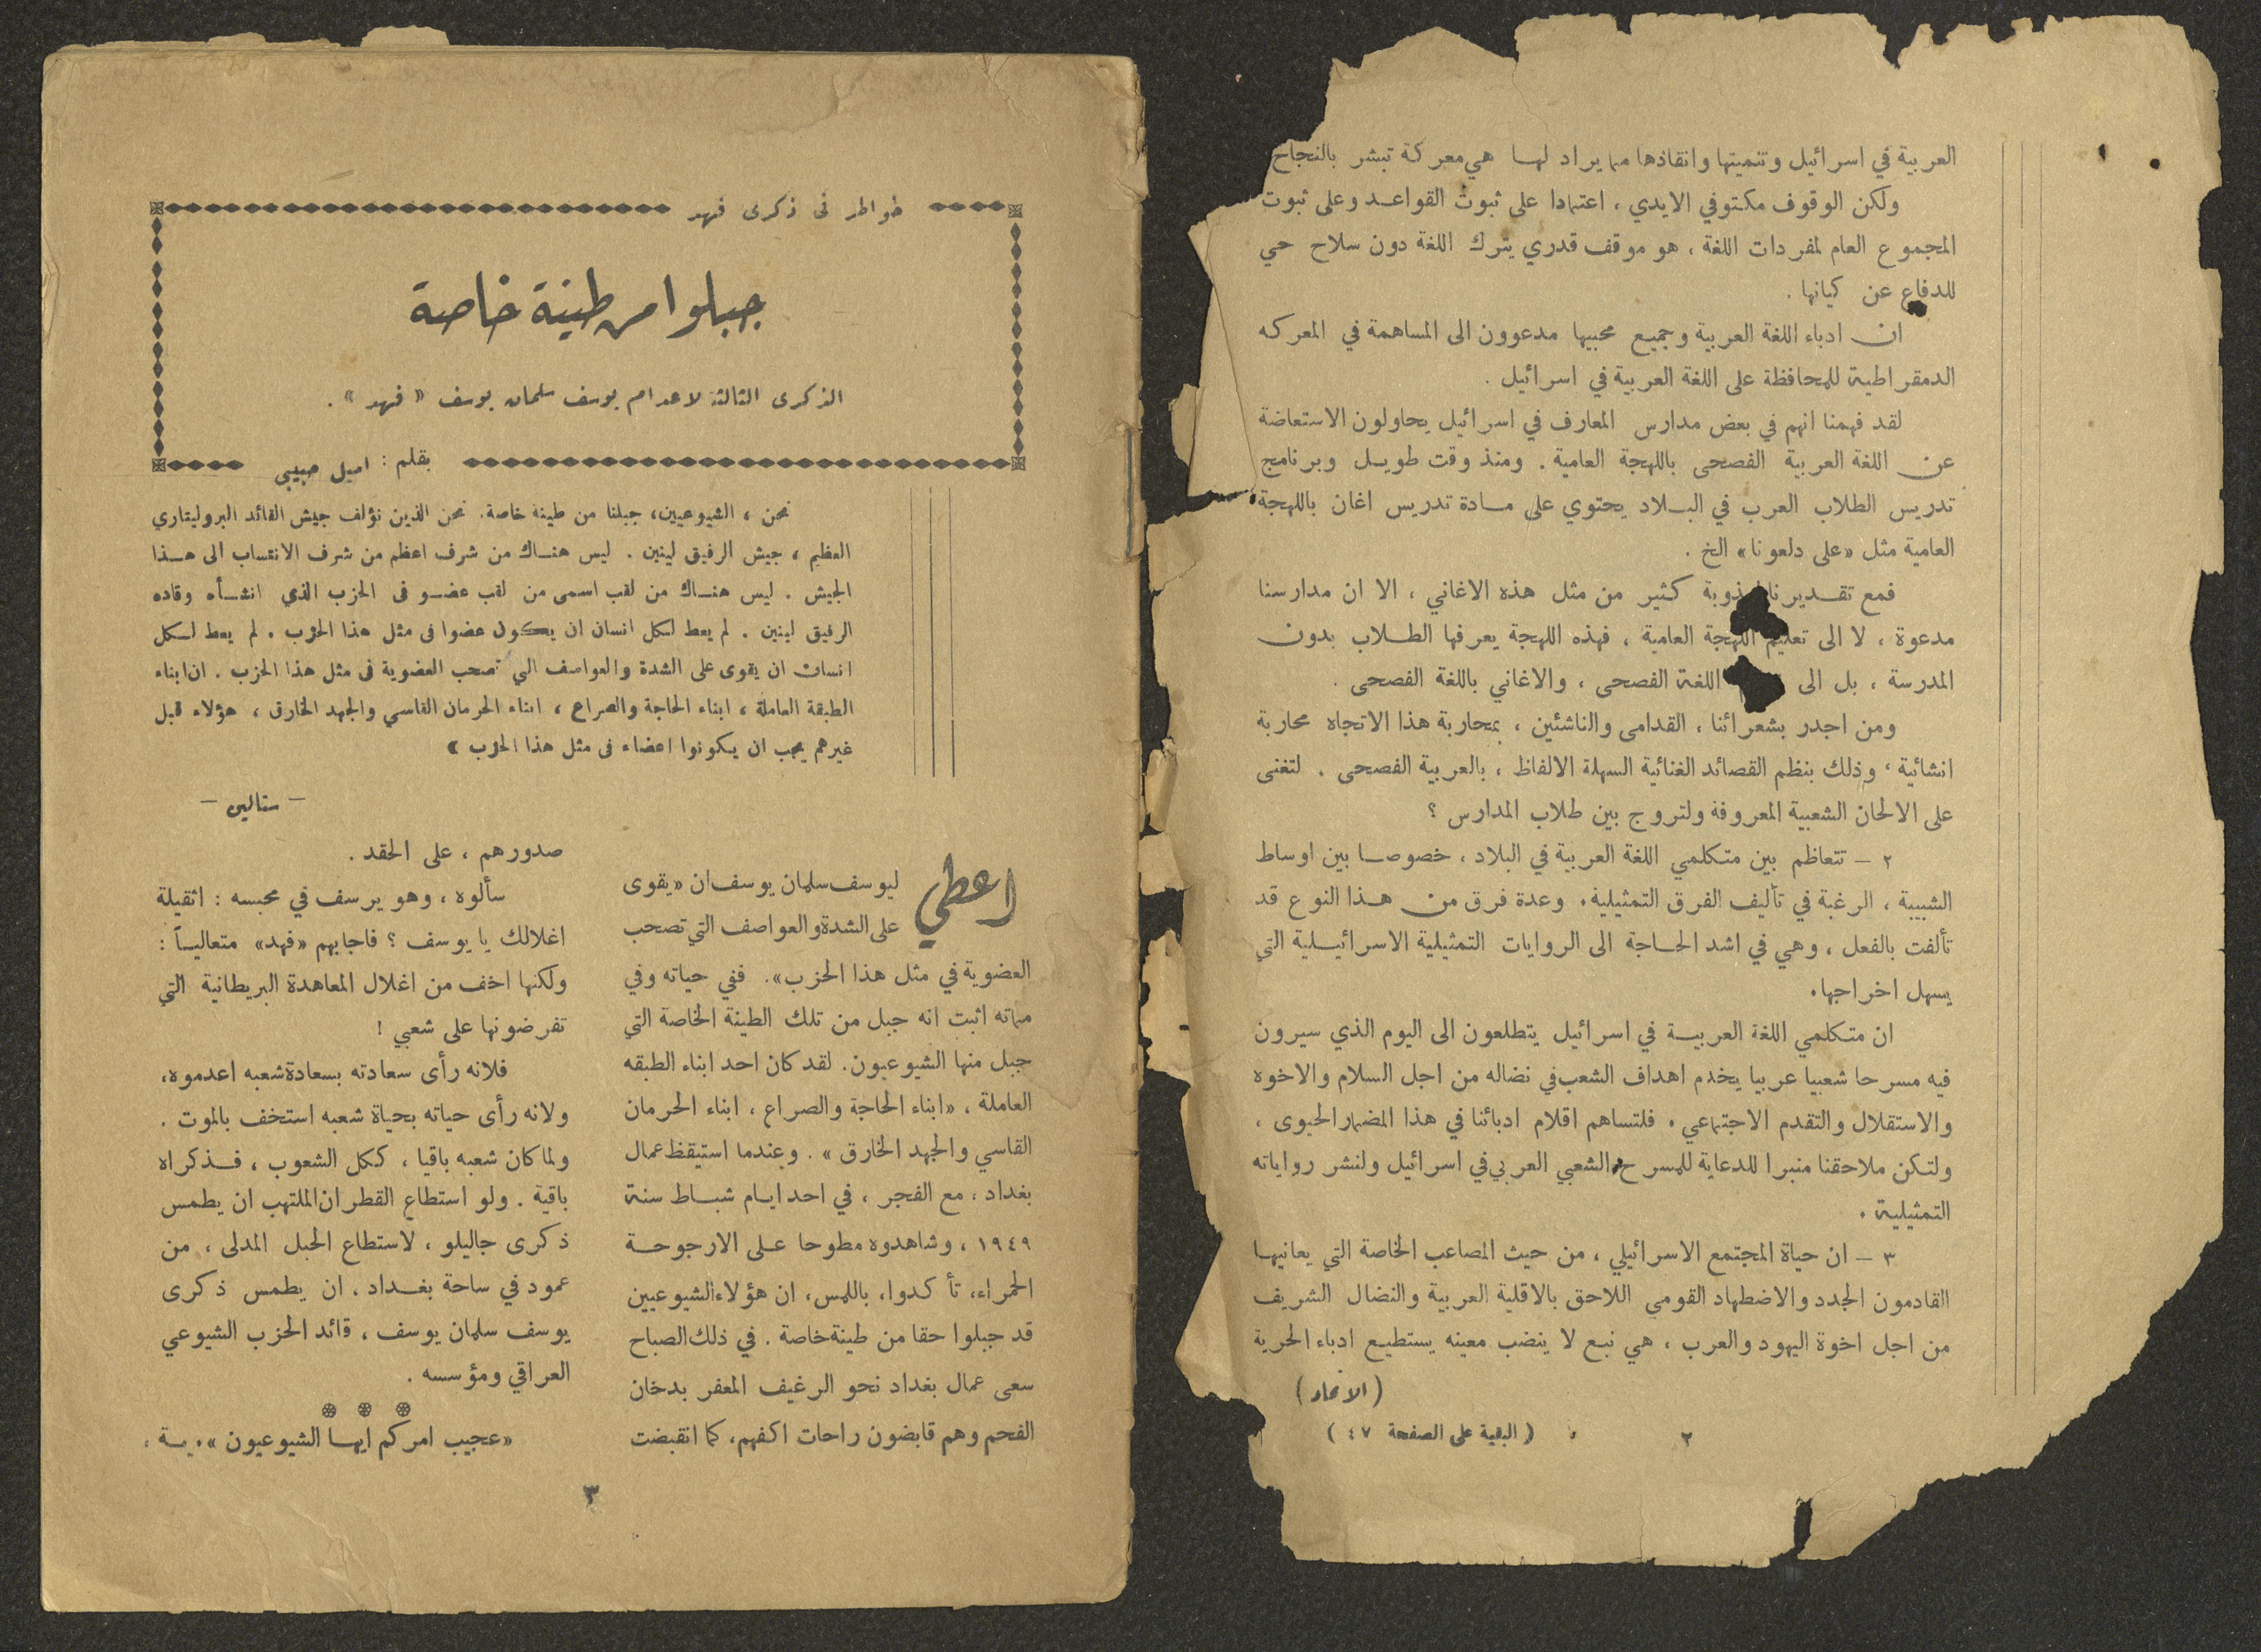 العربية في اسرائيل وتنميتها وانقاذها مما يراد لهـا هي معركة تبشر بالنجاح
ولكن الوقوف مكتوفي الايدي ، اعتمادا على ثبوت القواعـد وعلى ثبوت
المجموع العام لمفردات اللغة ، هو موقف قدري يترك اللغة دون سلاح حي
للدفاع عن كيانها .
ان ادباء اللغة العربية وجميع محبيها مدعوون الى المساهمة في المعركه
الدمقراطية للمحافظة على اللغة العربية في اسرائيل .
لقد فهمنا انهم في بعض مدارس المعارف في اسرائيل يحاولون الاستعاضة
عن اللغة العربية الفصحى باللهجة العامية . ومنذ وقت طويل وبرنامج
تدريس الطلاب العرب في البلاد يحتوي على مادة تدريس اغان باللهجة
العامية مثل «على دلعونا» الخ .
فمع تقـديرنا كثير من مثل هذه الاغاني ، الا ان مدارسنا
مدعوة ، لا الى تعليم اللهجة العامية ، فهذه اللهجة يعرفها الطلاب بدون
المدرسة ، بل الى اللغة الفصحى ، والاغاني باللغة الفصحى .
ومن اجدر بشعرائنا ، القدامى والناشئين ، بمحاربة هذا الاتجاه محاربة
انشائية ، وذلك بنظم القصائد الغنائية السهلة الالفاظ ، بالعربية الفصحى . لتغنى
على الالحان الشعبية المعروفة ولتروج بين طلاب المدارس ؟
٢ – تتعاظم بين متكلمي اللغة العربية في البلاد ، خصوصا بين اوساط
الشبيبة ، الرغبة في تأليف الفرق التمثيلية . وعدة فرق من هذا النوع قد
تألفت بالفعل ، وهي في اشد الحاجة الى الروايات التمثيلية الاسرائيلية التي
يسهل اخراجها .
ان متكلمي اللغة العربية في اسرائيل يتطلعون الى اليوم الذي سيرون
فيه مسرحا شعبيا عربيا يخدم اهداف الشعب في نضاله من اجل السلام والاخوه
والاستقلال والتقدم الاجتماعي . فلتساهم اقلام ادبائنا في هذا المضمار الحيوى ،
ولتكن ملاحقنا منبرا للدعاية للمسرح الشعبي العربي في اسرائيل ولنشر رواياته
التمثيلية .
٣ – ان حياة المجتمع الاسرائيلي ، من حيث المصاعب الخاصة التي يعانيها
القادمون الجدد والاضطهاد القومي اللاحق بالاقلية العربية والنضال الشريف
من اجل اخوة اليهود والعرب ، هي نبع لا ينضب معينه يستطيع ادباء الحرية
(الاتحاد)
(البقية على الصفحة ٤٧)
٢
خواطر في ذكرى فهد
جبلوا من طينة خاصة
الذكرى الثالثة لاعدام يوسف سلمان يوسف « فهد » .
بقلم : اميل حبيبي
نحن ، الشيوعيين، جبلنا من طينة خاصة. نحن الذين نؤلف جيش القائد البروليتاري
العظيم ، جيش الرفيق لينين . ليس هنـاك من شرف اعظم من شرف الانتساب الى هـذا
الجيش . ليس هنـاك من لقب اسمى من لقب عضو في الحزب الذي انشـأه وقاده
الرفيق لينين . لم يعط لكل انسان ان يكون عضوا في مثل هذا الحزب . لم يعط لكل
انسان ان يقوى على الشدة والعواصف التي تصحب العضوية في مثل هذا الحزب . ان ابناء
الطبقة العاملة ، ابناء الحاجة والصراع ، ابناء الحرمان القاسي والجهد الخارق ، هؤلاء قبل
غيرهم يجب ان يكونوا اعضاء في مثل هذا الحزب »
– ستالين –
اعطي ليوسف سلمان يوسف ان «يقوى
على الشدة والعواصف التي تصحب
العضوية في مثل هذا الحزب». ففي حياته وفي
مماته اثبت انه جبل من تلك الطينة الخاصة التي
جبل منها الشيوعيون. لقد كان احد ابناء الطبقه
العاملة ، «ابناء الحاجة والصراع ، ابناء الحرمان
القاسي والجهد الخارق » . وعندما استيقظ عمال
بغداد ، مع الفجر ، في احد ايام شباط سنة
١٩٤٩ ، وشاهدوه مطوحا على الارجوحة
الحمراء، تأكدوا، باللمس، ان هؤلاء الشيوعيين
قد جبلوا حقا من طينة خاصة . في ذلك الصباح
سعى عمال بغداد نحو الرغيف المعفر بدخان
الفحم وهم قابضون راحات اكفهم، كما انقبضت
صدورهم ، على الحقد .
سألوه ، وهو يرسف في محبسه : اثقيلة
اغلالك يا يوسف ؟ فاجابهم «فهد» متعاليـاً :
ولكنها اخف من اغلال المعاهدة البريطانية التي
تفرضونها على شعبي !
فلانه رأى سعادته بسعادة شعبه اعدموه،
ولانه رأى حياته بحياة شعبه استخف بالموت .
ولما كان شعبه باقيا ، ككل الشعوب ، فـذكراه
باقية . ولو استطاع القطران الملتهب ان يطمس
ذكرى جاليلو ، لاستطاع الحبل المدلى ، من
عمود في ساحة بغـداد ، ان يطمس ذكرى
يوسف سلمان يوسف ، قائد الحزب الشيوعي
العراقي ومؤسسه .
«عجيب امركم ايهـا الشيوعيون »
٣